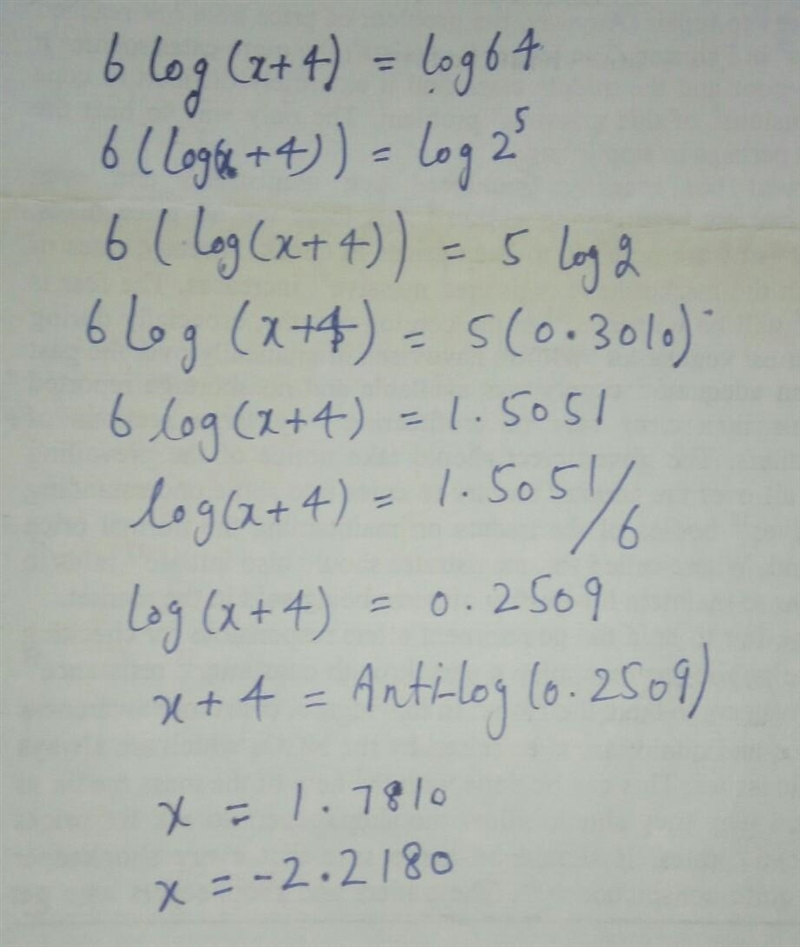 6 log (x+4) = log 64
6 (log(x +4)) = log 2⁵
6 ( log(x+4)) = 5 log 2
6 Log (x+4) = 5(0.3010)
6 log(x+4) = 1.5051
log(x+4) = 1.5051/6
log(x+4) = 0.2509
x+4 = Anti-log (0.2509)
x = 1.7810
x = -2.2180